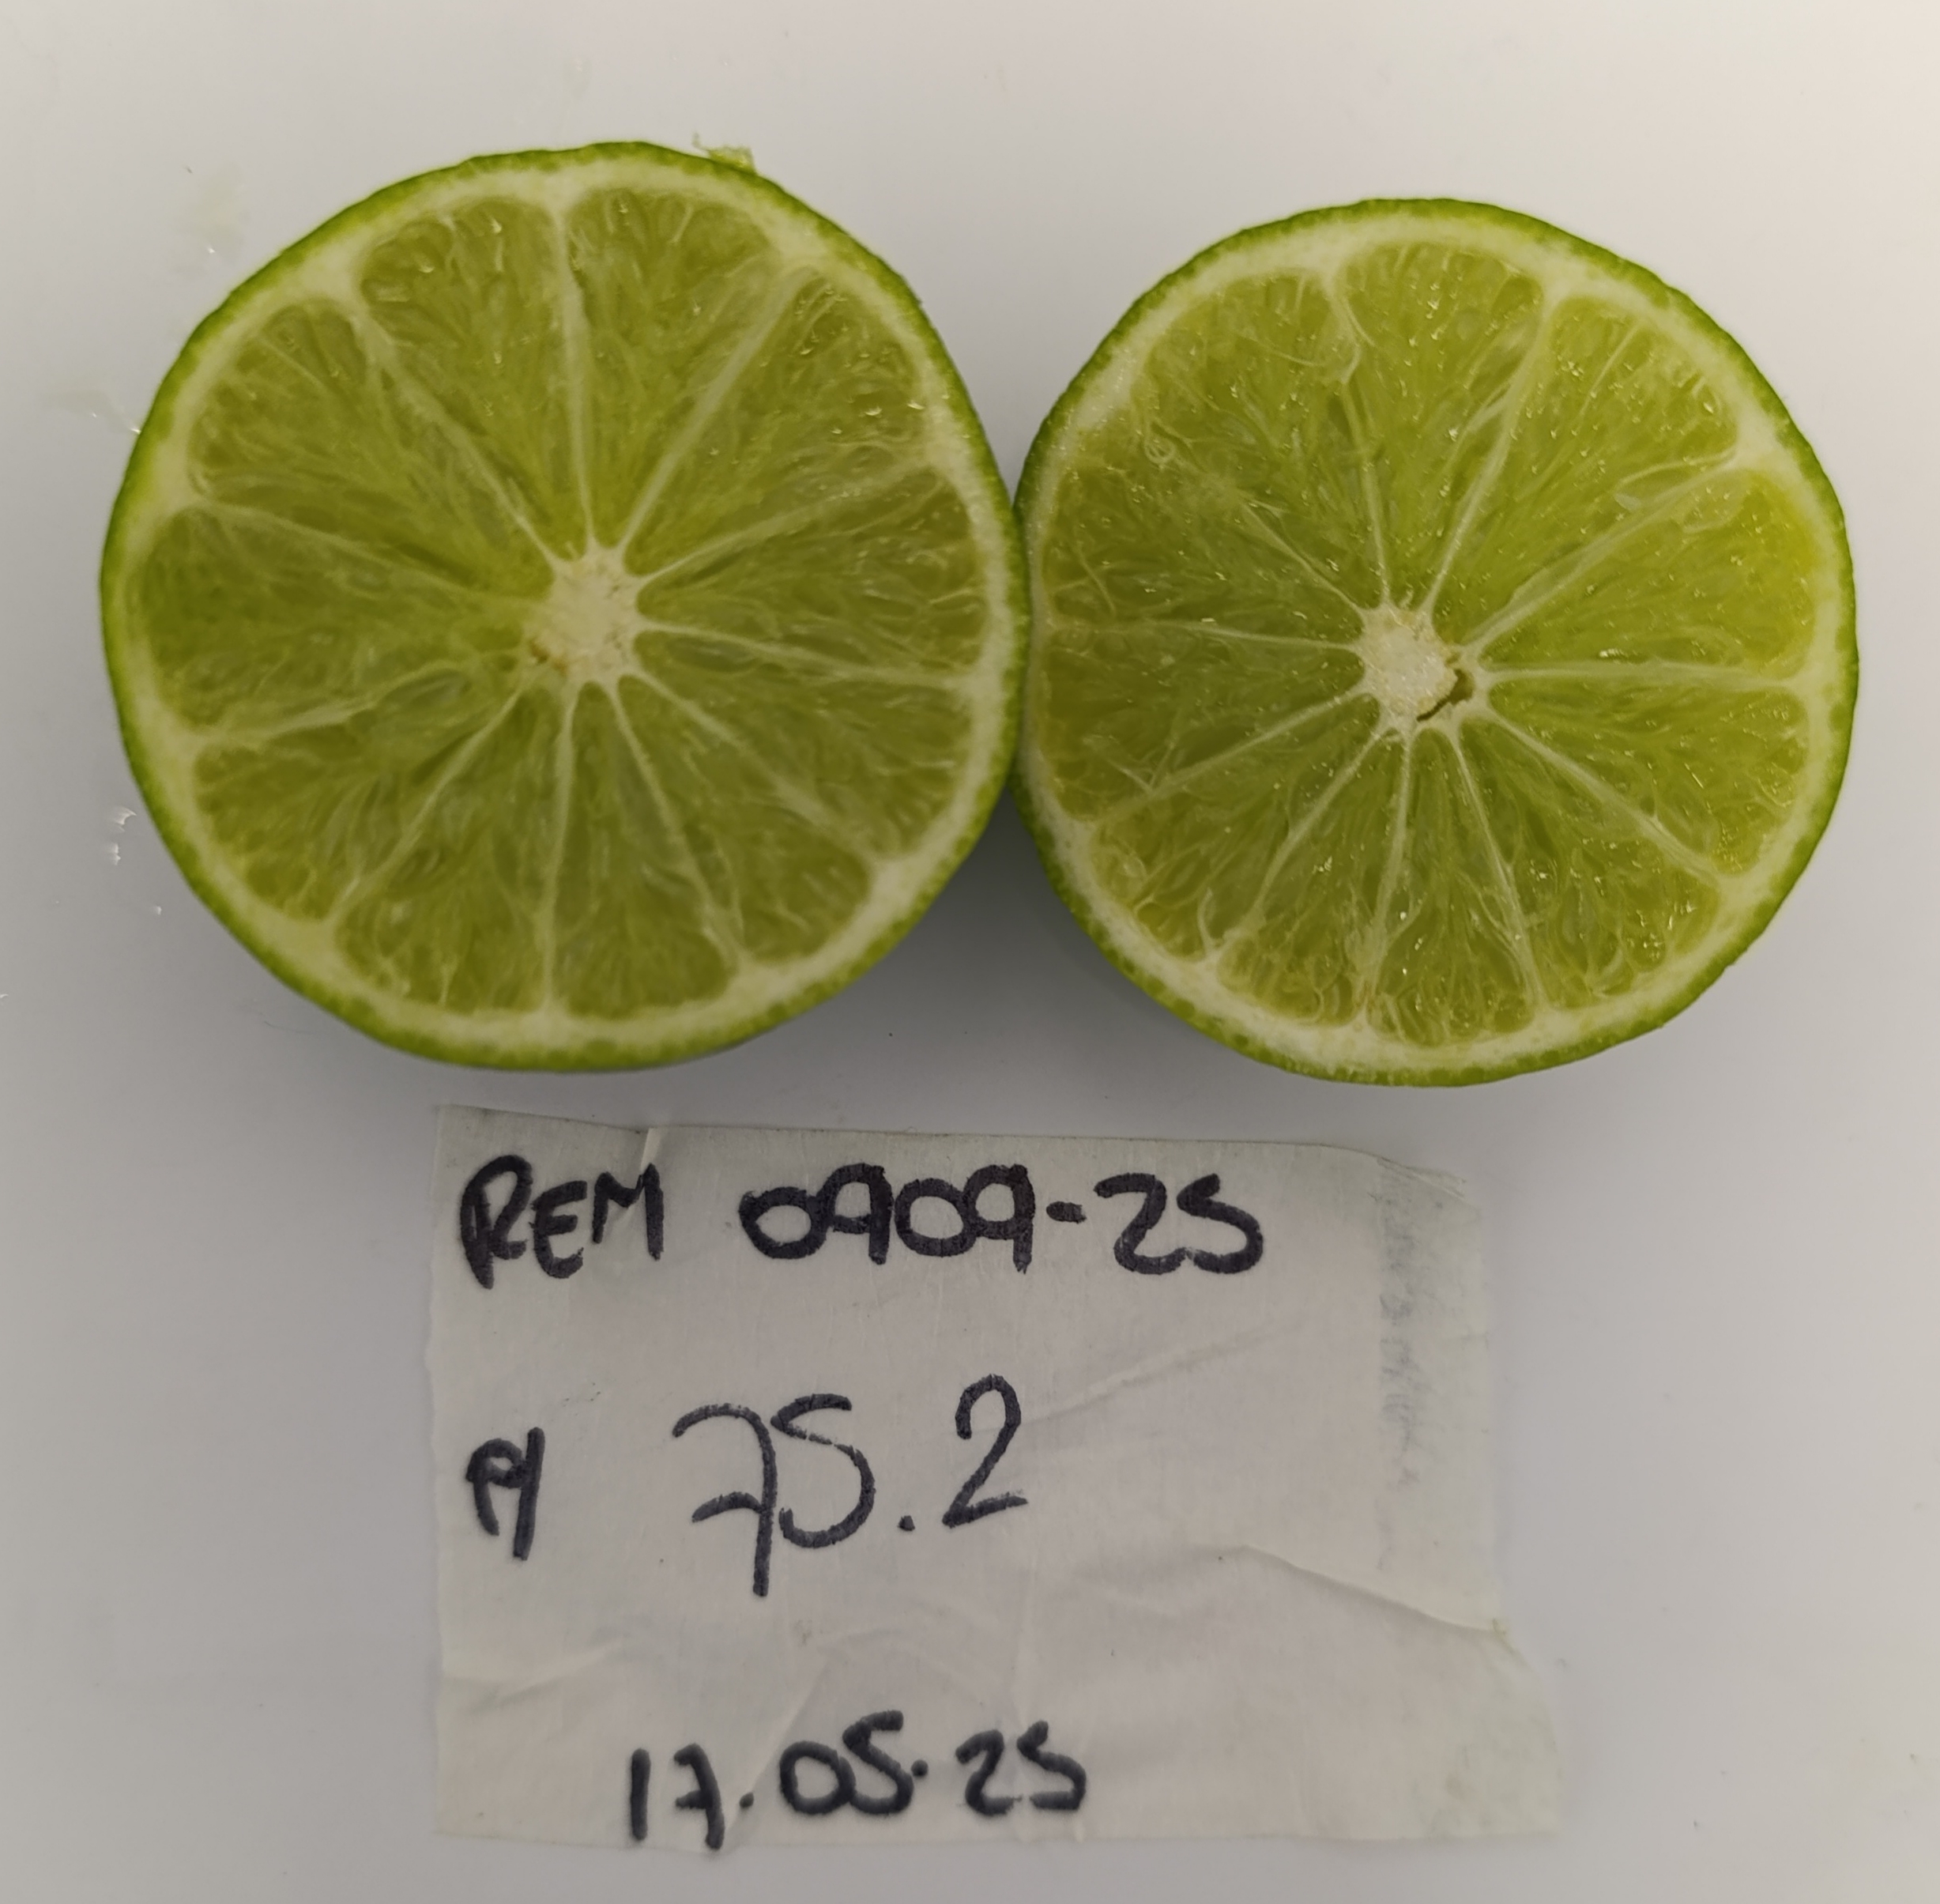 REM 0909-25
P/ 75.2
17.05.25